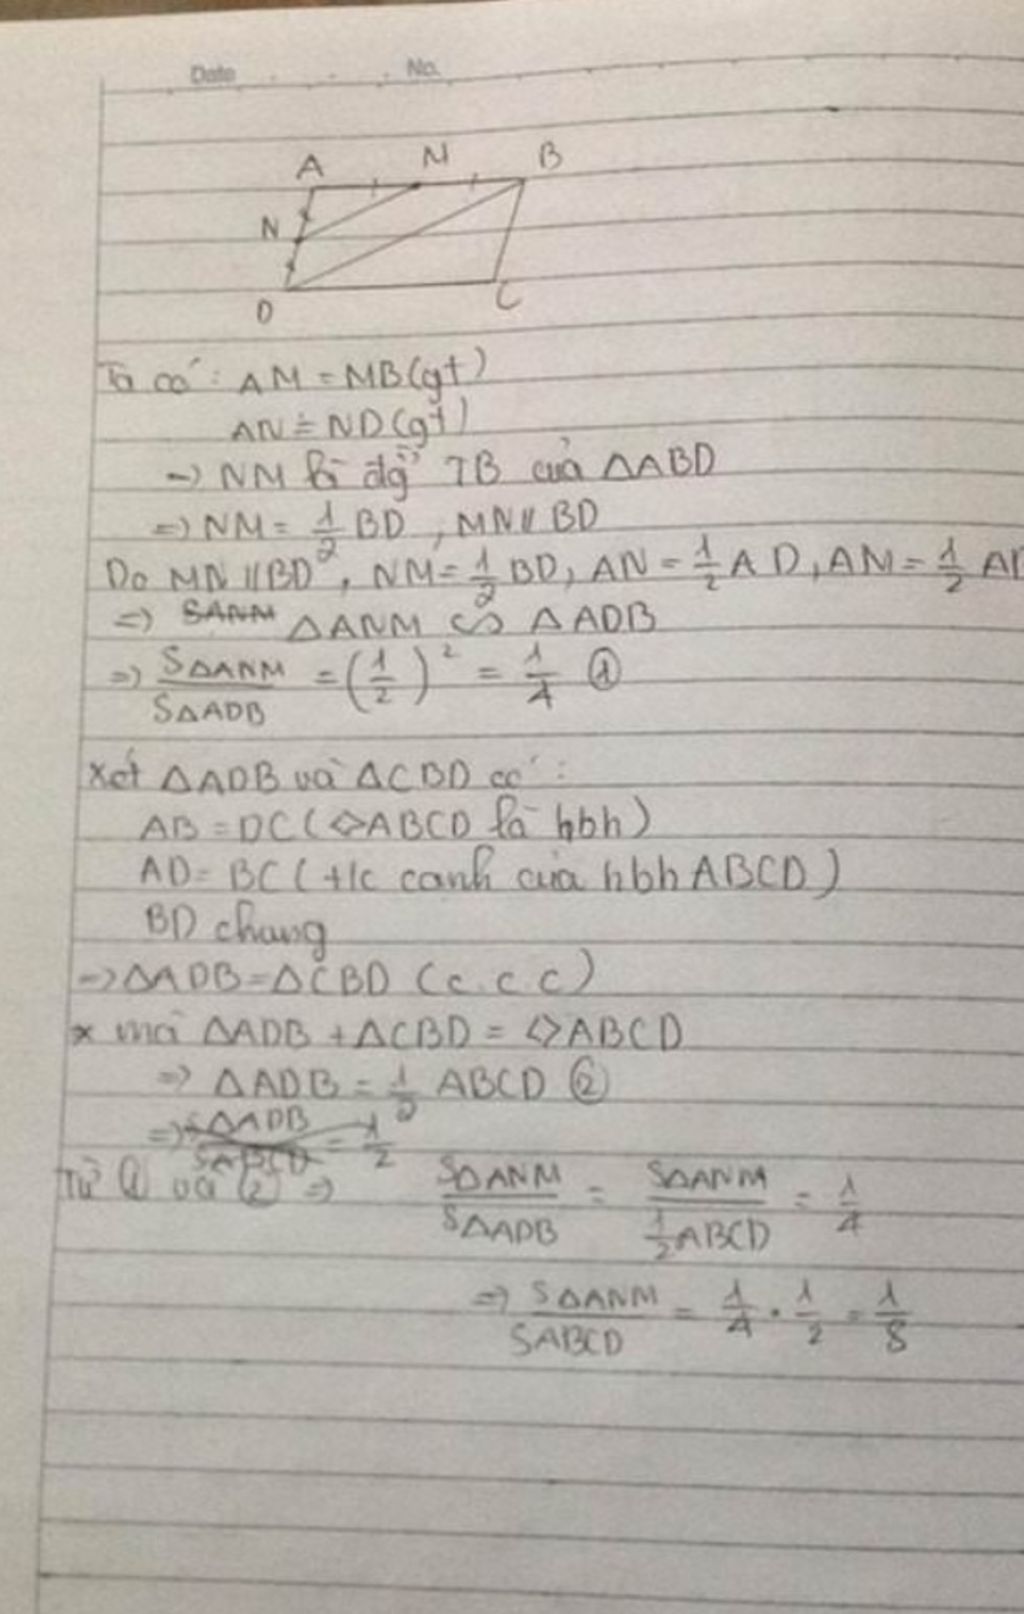 Date No.
A M B
N
D C
Ta có: AM = MB (gt)
AN = ND (gt)
=> NM là đg TB của ΔABD
=> NM = 1/2 BD, MN // BD
Do MN // BD, NM = 1/2 BD, AN = 1/2 AD, AM = 1/2 AB
=> SANM ΔANM ∽ ΔADB
=> SΔANM/SΔADB = (1/2)² = 1/4 ①
Xét ΔADB và ΔCBD có:
AB = DC (◇ABCD là hbh)
AD = BC (t/c cạnh của hbh ABCD)
BD chung
=> ΔADB = ΔCBD (c.c.c)
* mà ΔADB + ΔCBD = ◇ABCD
=> ΔADB = 1/2 ABCD ②
=> SΔADB/SABCD = 1/2
Từ ① và ② => SΔANM/SΔADB = SΔANM/(1/2 ABCD) = 1/4
=> SΔANM/SABCD = 1/4 . 1/2 = 1/8